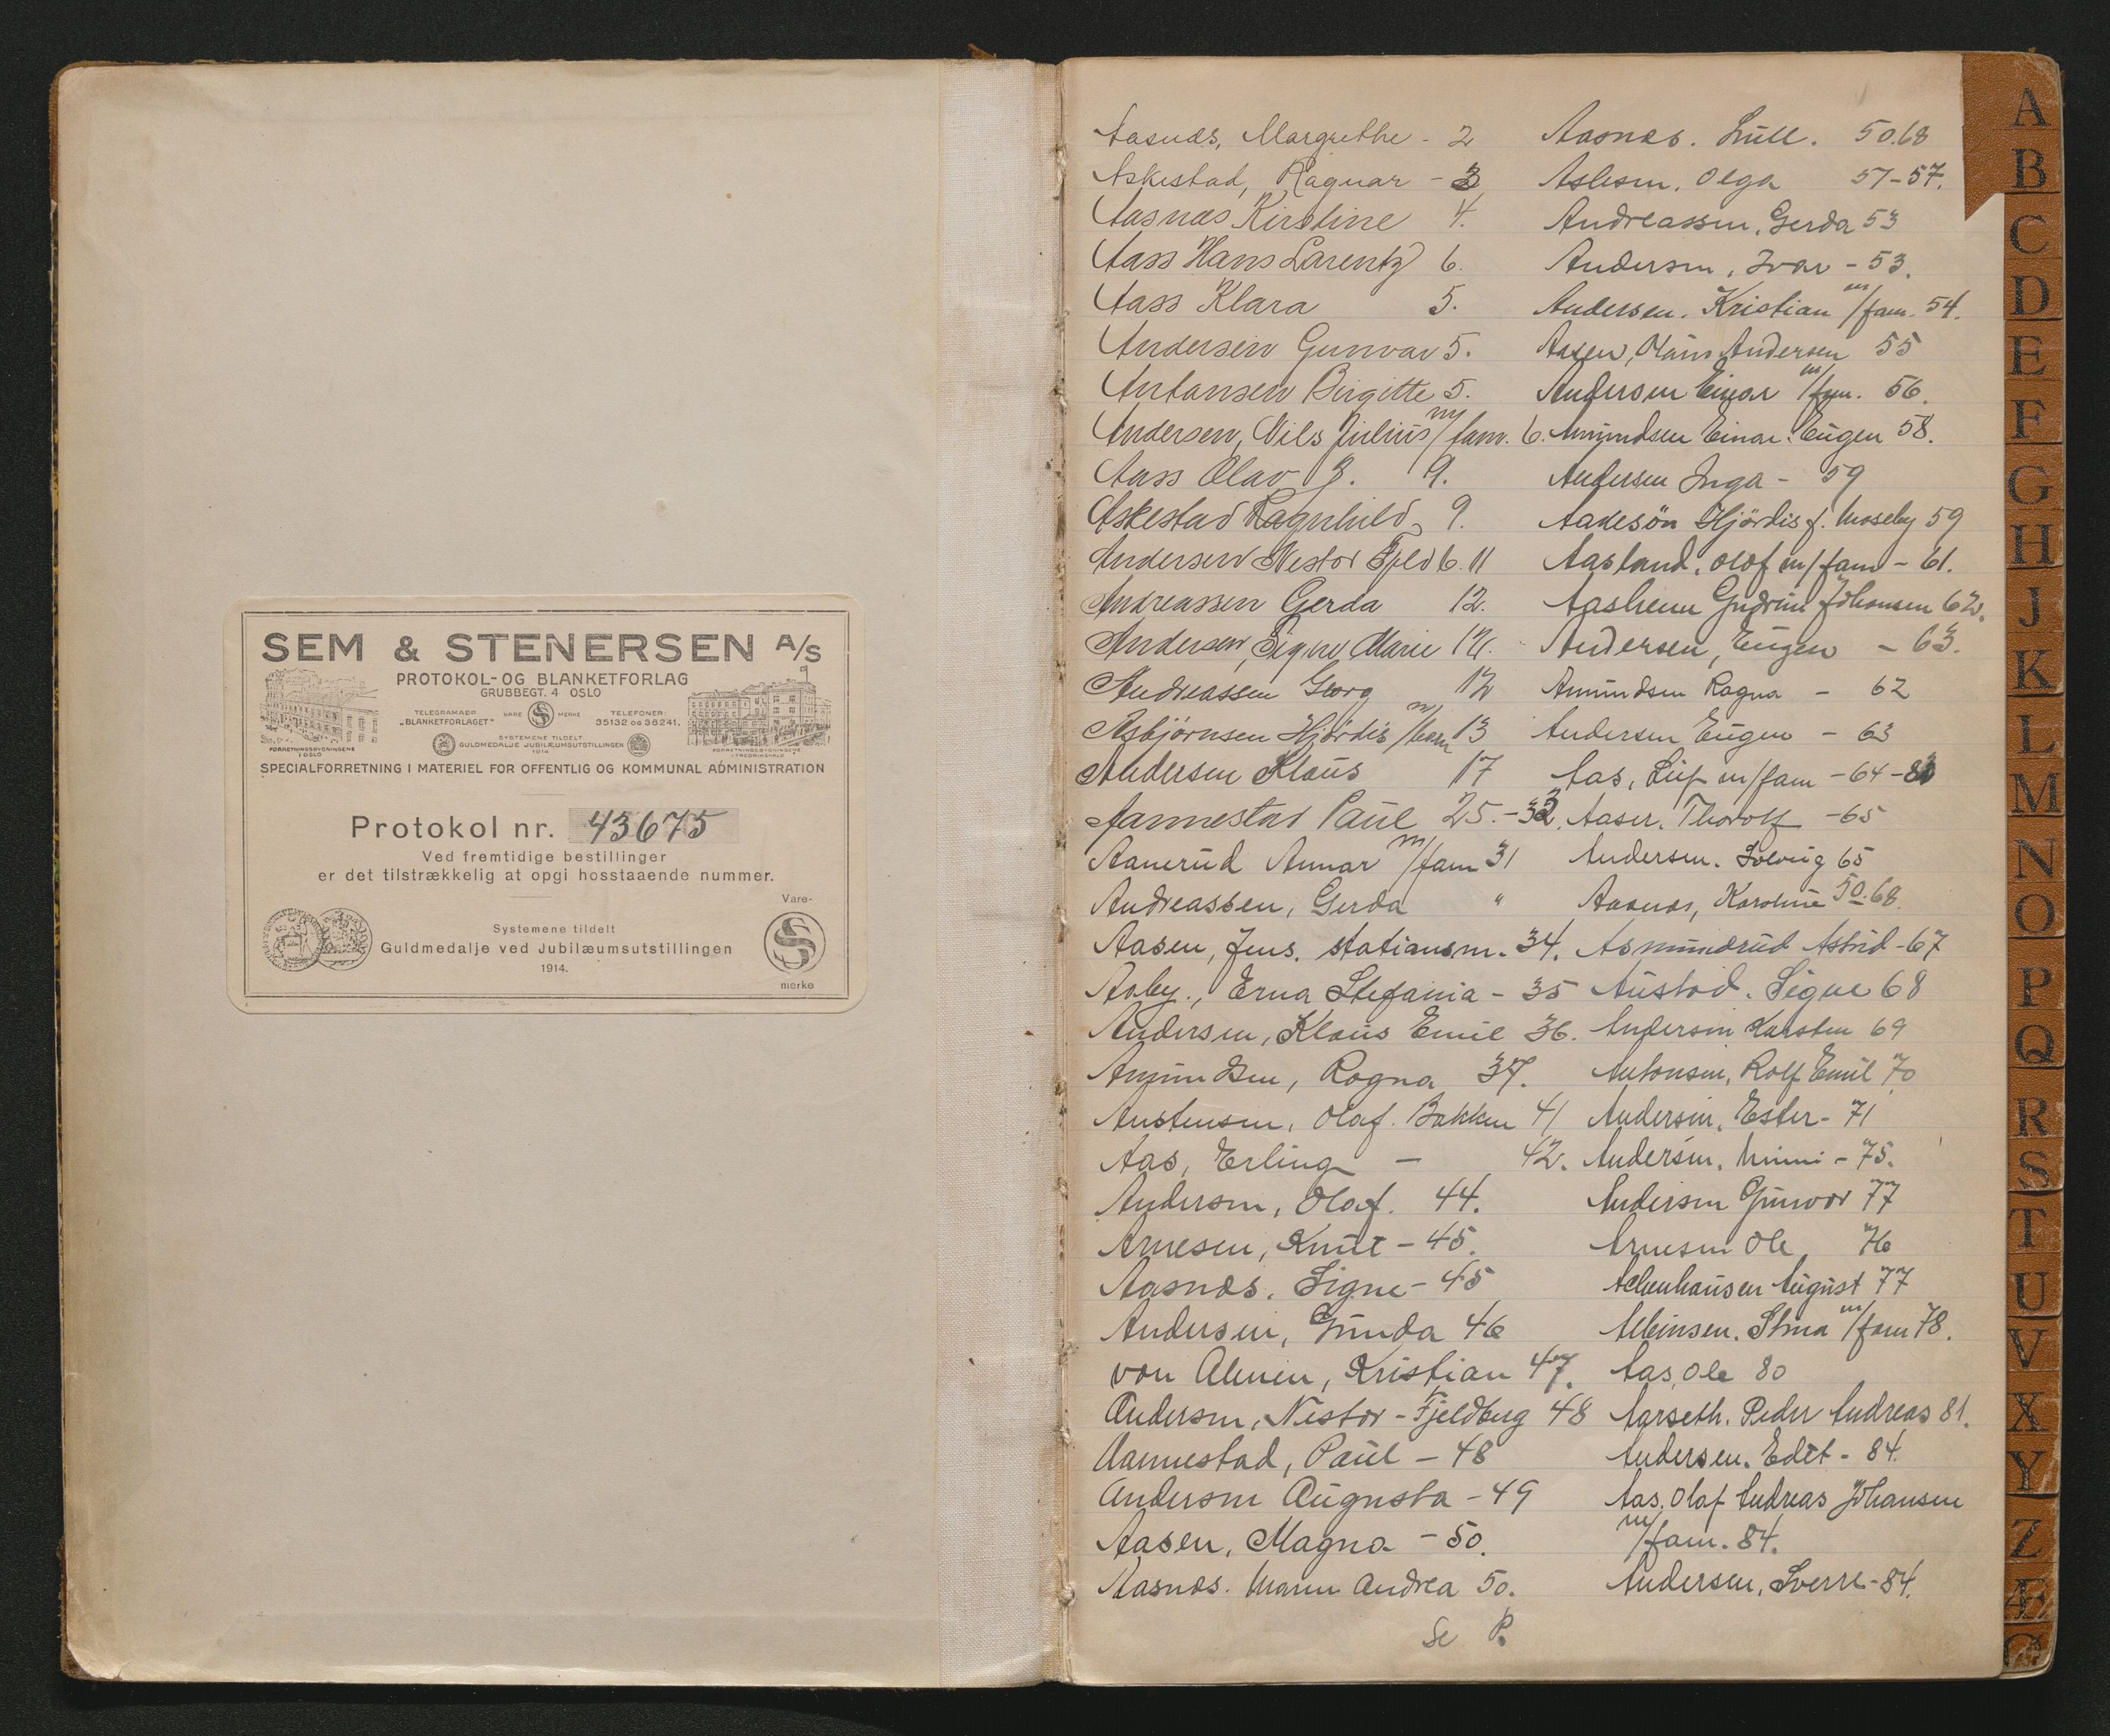 SEM & STENERSEN A/S
PROTOKOL- OG BLANKETFORLAG
GRUBBEGT. 4 OSLO
TELEGRAMADR
„BLANKETFORLAGET"
VARE MERKE
TELEFONER:
35132 OG 36241.
SYSTEMENE TILDELT
GULDMEDALJE JUBILÆUMSUTSTILLINGEN
1914
FORRETNINGSBYGNINGENE
I OSLO
FORRETNINGSBYGNINGENE
SPECIALFORRETNING I MATERIEL FOR OFFENTLIG OG KOMMUNAL ADMINISTRATION
Protokol nr. 43675
Ved fremtidige bestillinger
er det tilstrækkelig at opgi hosstaaende nummer.
Systemene tildelt
Guldmedalje ved Jubilæumsutstillingen
1914.
Vare-
merke
Aasnæs, Margrethe - 2
Askestad, Ragnar - 3
Aasnæs Kirstine 4.
Aass Hans Larentz 6.
Aass Klara 5.
Andersen Gunvar 5.
Antansen Birgitte 5.
Andersen, Nils Julius m/fam. 6.
Aass Olav J. 9.
Askestad Ragnhild 9.
Andersen Nestor Fjeldb. 11
Andreassen Gerda 12.
Andersen, Signe Marie 12.
Andreassen Georg 12
Asbjörnsen Hjördis m/barn 13
Andersen Klaus 17
Aannestad Paul 25.-32.
Aanerud Annar m/fam 31
Andreassen, Gerda "
Aasen, Jens. stationsm. 34.
Aaby., Erna Stefania - 35
Andersen, Klaus Emil 36.
Amundsen, Ragna 37.
Austensen, Olaf. Bakken 41
Aas, Erling - 42.
Andersen, Olaf. 44.
Arnesen, Knut - 45.
Aasnæs. Signe - 45
Andersen, Gunda 46
von Ahnen, Kristian 47.
Andersen, Nestor - Fjeldberg 48
Aannestad, Paul - 48
Andersen Augusta - 49
Aasen, Magna - 50.
Aasnæs. Maren Andrea 50.
Se P.
Aasnæs. Lull. 50.68
Aslesen, Olga 57-57.
Andreassen, Gerda 53
Andersen, Ivar - 53.
Andersen. Kristian m/fam. 54.
Aasen, Hans Andersen 55
Andersen Einar m/fam. 56.
Amundsen Einar. Eugen 58.
Andersen Inga - 59
Aakesön Hjördis f. Moseby 59
Aasland, Olof m/fam - 61.
Aasheim Gudrun Johansen 62.
Andersen, Eugen - 63.
Amundsen Ragna - 62
Andersen Eugen - 63
Aas, Leif m/fam - 64 - 8
Aaser. Thorolf - 65
Andersen. Solveig 65
Aasnæs, Karoline 50.68.
Asmundrud Astrid - 67
Austad. Signe 68
Andersen Karsten 69
Antonsen, Rolf Emil 70
Andersen, Ester - 71
Andersen, Minni - 75.
Andersen Gunvor 77
Arnesen Ole 76
Achenhausen August 77
Albinsen. Stina m/fam 78.
Aas, Ole 80
Aarseth. Peder Andreas 81.
Andersen. Edit - 84.
Aas. Olaf Andreas Johansen
m/fam. 84.
Andersen, Sverre - 84.
A
B
C
D
E
F
G
H
J
K
L
M
N
O
P
Q
R
S
T
U
V
X
Y
Z
Æ
Ø